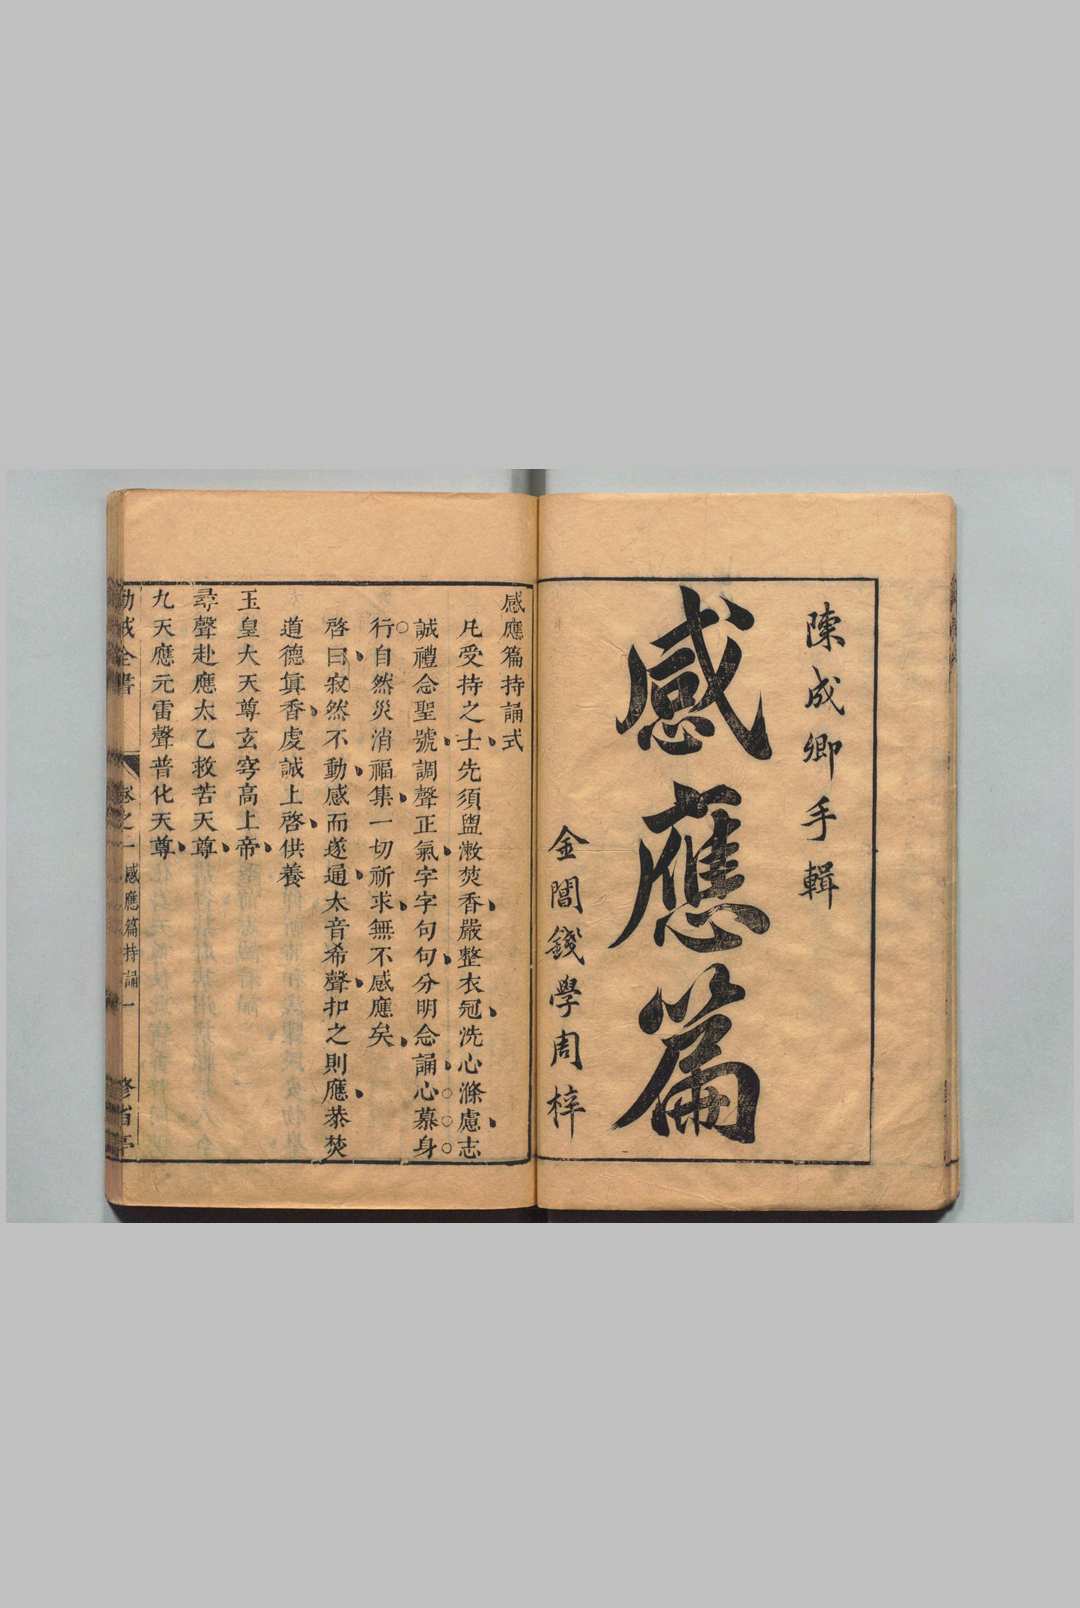 陳成卿手輯
感應篇
金閶錢學周梓
感應篇持誦式
凡受持之士先須盥漱焚香嚴整衣冠洗心滌慮志
誠禮念聖號調聲正氣字字句句分明念誦心慕身
行自然災消福集一切祈求無不感應矣
啓曰寂然不動感而遂通太音希聲扣之則應恭焚
道德眞香虔誠上啓供養
玉皇大天尊玄穹高上帝
尋聲赴應太乙救苦天尊
九天應元雷聲普化天尊
勸戒全書 卷之一 感應篇持誦 一 修省亭